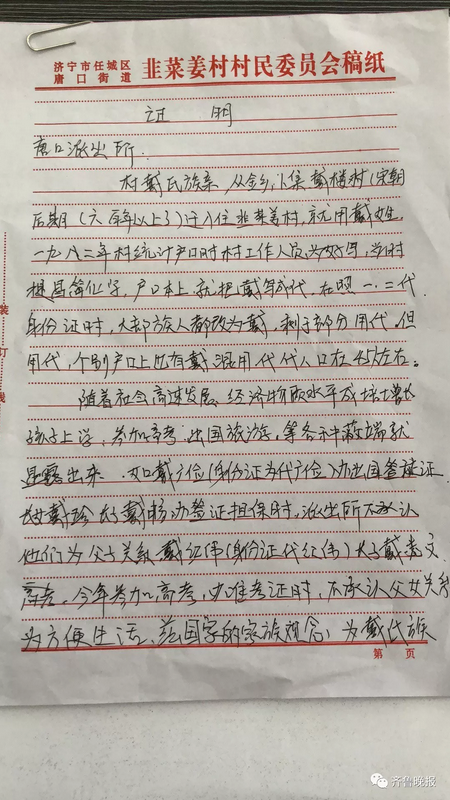 济宁市任城区
唐口街道
韭菜姜村村民委员会稿纸
证 明
唐口派出所
村戴氏族亲 从金乡 集戴楼村(宋朝
后期(六百年以上了)迁入住韭菜姜村,就用戴姓
一九八二年村统计户口时村工作人员为好写,当时
提昌简化字,户口本上就把戴写成代,在照一、二代
身份证时,大部族人都改为戴,剩于部分用代,但
用代,个别户口上也有戴混用代代人口在45左右。
随着社会高速发展 经济物质水平成倍增长
孩子上学,参加高考,出国旅游,等各种弊端就
显露出来 如戴广位(身份证为代广位)办出国签证
戴珍 长戴 办签证担保时,派出所不承认
他们为父子关系 戴红伟(身份证代红伟)长子戴 文
高考,今年参加高考,办准考证时,不承认父女关系
为方便生活、 国家的家族观念,为戴氏族
第 页
装
订
线
齐鲁晚报